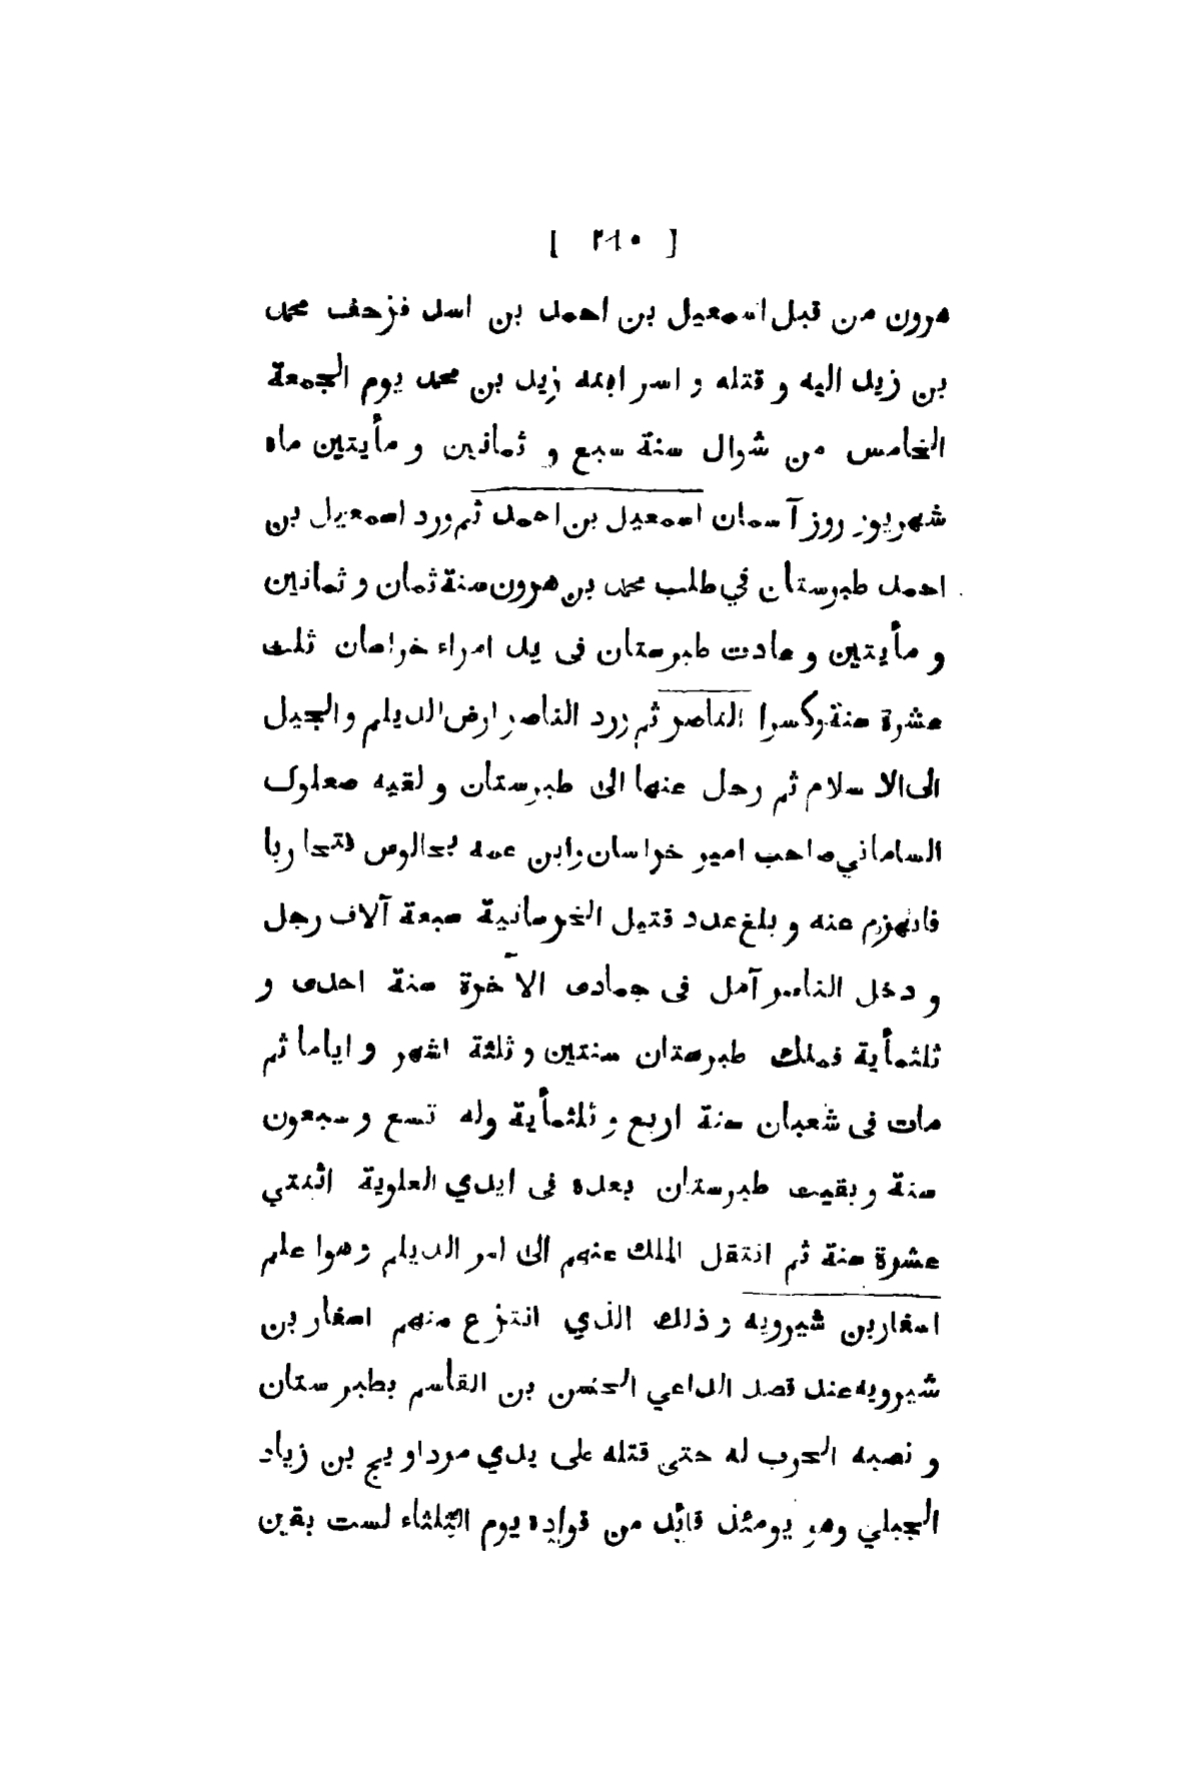 [ ٢١٠ ]
هرون من قبل اسمعيل بن احمد بن اسد فزحف محمد
بن زيد اليه و قتله و اسر ابنه زيد بن محمد يوم الجمعة
الخامس من شوال سنة سبع و ثمانين و مأيتين ماه
شهريور روز آسمان اسمعيل بن احمد ثم ورد اسمعيل بن
احمد طبرستان في طلب محمد بن هرون سنة ثمان و ثمانين
و مأيتين و عادت طبرستان فى يد امراء خراسان ثلث
عشرة سنة وكسرا الناصر ثم ورد الناصر ارض الديلم و الجيل
الى الا سلام ثم رحل عنها الى طبرستان و لقيه صعلوك
الساماني صاحب امير خراسان وابن عمه بجالوس فتحا ربا
فانهزم عنه و بلغ عدد قتيل الخرسانية سبعة آلاف رجل
و دخل الناصر آمل فى جمادى الآخرة سنة احدى و
ثلثمأية فملك طبرستان سنتين و ثلثة اشهر و اياما ثم
مات فى شعبان سنة اربع و ثلثمأية وله تسع و سبعون
سنة و بقيت طبرستان بعده فى ايدي العلوية اثنتي
عشرة سنة ثم انتقل الملك عنهم الى امر الديلم وهوا علم
اسفاربن شيرويه و ذلك الذي انتزع منهم اسفار بن
شيرويه عند قصد الداعي الحسن بن القاسم بطبر ستان
و نصبه الحرب له حتى قتله على يدي مرداو يج بن زياد
الجبلي وهو يومئذ قائد من قواده يوم الثلثاء لست بقين